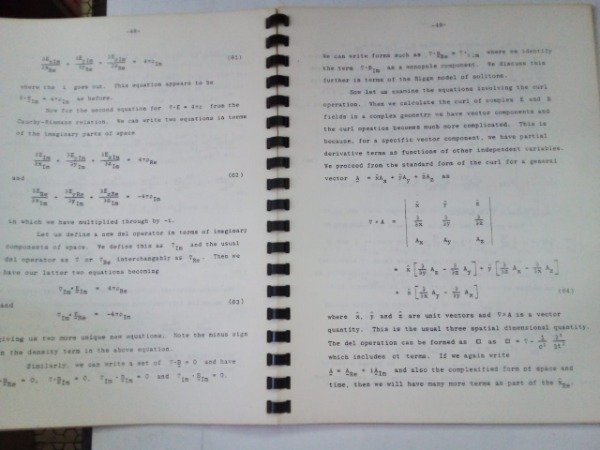 -48-
∂E_xIm/∂x_Re + ∂E_yIm/∂y_Re + ∂E_zIm/∂z_Re = 4πρ_Im (81)
where the i goes out. This equation appears to be
∇·E_Im = 4πρ_Im as before.
Now for the second equation for ∇·E = 4πρ from the
Cauchy-Riemann relation. We can write two equations in terms
of the imaginary parts of space
∂E_xIm/∂x_Im + ∂E_yIm/∂y_Im + ∂E_zIm/∂z_Im = 4πρ_Re
and (82)
∂E_xRe/∂x_Im + ∂E_yRe/∂y_Im + ∂E_zRe/∂z_Im = -4πρ_Im
in which we have multiplied through by -i.
Let us define a new del operator in terms of imaginary
components of space. We define this as ∇_Im and the usual
del operator as ∇ or ∇_Re interchangably as ∇_Re. Then we
have our latter two equations becoming
∇_Im·E_Im = 4πρ_Re
and (83)
∇_Im·E_Re = -4πρ_Im
giving us two more unique new equations. Note the minus sign
in the density term in the above equation.
Similarly, we can write a set of ∇·B = 0 and have
B_Re = 0, ∇·B_Im = 0, ∇_Im·B_Im = 0 and ∇_Im·B_Im = 0.
-49-
We can write forms such as where we identify
the term ∇·B_Im as a monopole component. We discuss this
further in terms of the Higgs model of solitons.
Now let us examine the equations involving the curl
operation. When we calculate the curl of complex E and B
fields in a complex geometry we have vector components and
the curl opeation becomes much more complicated. This is
because, for a specific vector component, we have partial
derivative terms as functions of other independent variables.
We proceed from the standard form of the curl for a general
vector A = x̂A_x + ŷA_y + ẑA_z as
x̂ ŷ ẑ
∇×A = ∂/∂x ∂/∂y ∂/∂z
A_x A_y A_z
= x̂ [∂/∂y A_z - ∂/∂z A_y] + ŷ [∂/∂z A_x - ∂/∂x A_z]
+ ẑ [∂/∂x A_y - ∂/∂y A_x] (84)
where x̂, ŷ and ẑ are unit vectors and ∇×A is a vector
quantity. This is the usual three spatial dimensional quantity.
The del operation can be formed as □ as □ = ∇ - 1/c² ∂²/∂t²
which includes ct terms. If we again write
A = A_Re + iA_Im and also the complexified form of space and
time, then we will have many more terms as part of the